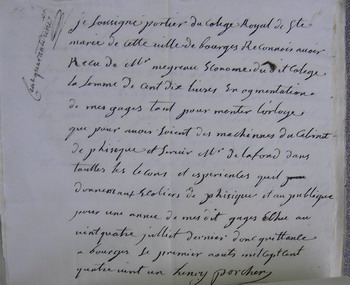 je soussigné portier du colege Royal de Ste
marie de cette ville de bourges Reconnois avoir
Recu de Mr. megreau Econome du dit Colege
la somme de cent dix livres En ogmentation
de mes gages tant pour monter lorloge
que pour avoir soient des machinnes du Cabinet
de phisique et servir Mr. de lafond dans
touttes les lecons et experiences quil
donnent aux Ecoliers de phisique et au publique
pour une année de mes dit gages Echue au
vint quatre juillet dernier donc quittance
a bourges le premier aouts mil sept cent
quatre vint un henry porcher